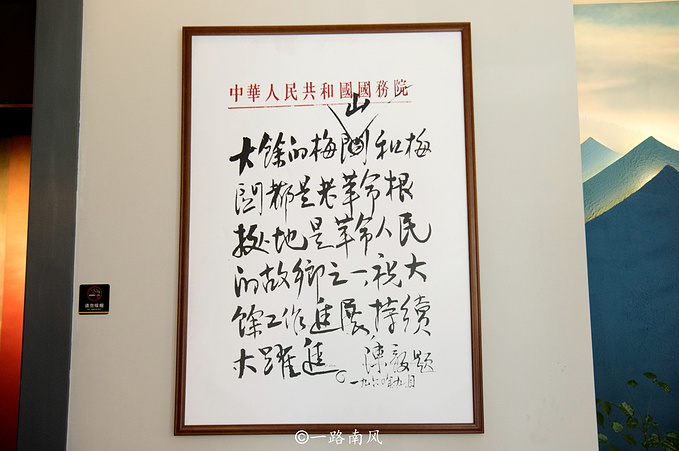 中華人民共和國國務院
山
大餘的梅關和梅
關都是老革命根
據地是革命人民
的故鄉之一,祝大
餘工作進展,持續
大躍進。陳毅題
一九六〇年九月
请勿吸烟
©一路南风